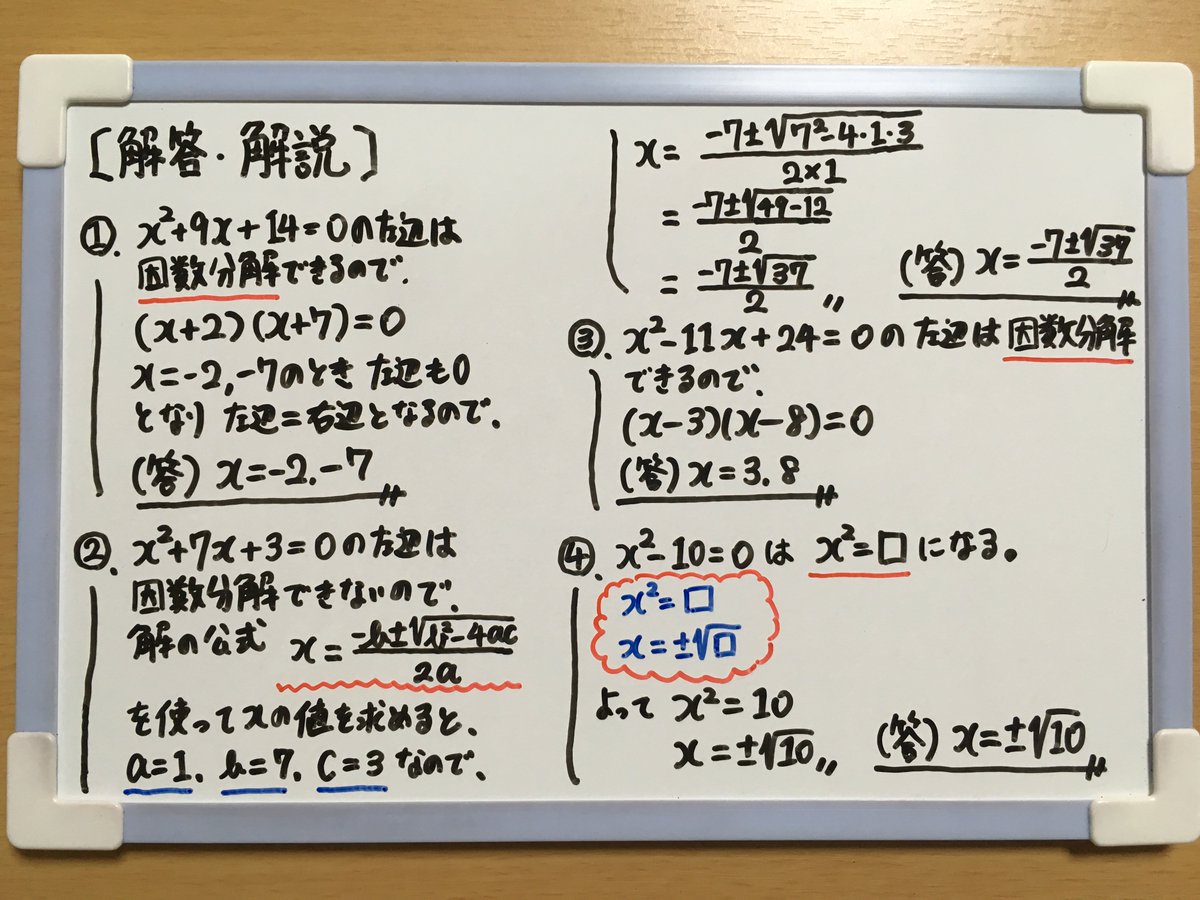 [解答・解説]
①. x²+9x+14=0の左辺は
因数分解できるので、
(x+2)(x+7)=0
x=-2,-7のとき 左辺も0
となり 左辺=右辺となるので、
(答) x=-2,-7
②. x²+7x+3=0の左辺は
因数分解できないので、
解の公式 x=\frac{-b±√(b²-4ac)}{2a}
を使ってxの値を求めると、
a=1, b=7, c=3なので、
x=\frac{-7±√(7²-4・1・3)}{2×1}
=\frac{-7±√(49-12)}{2}
=\frac{-7±√37}{2}〃 (答) x=\frac{-7±√37}{2}
③. x²-11x+24=0の左辺は因数分解
できるので、
(x-3)(x-8)=0
(答) x=3,8
④. x²-10=0は x²=□になる。
x²=□
x=±√□
よって x²=10
x=±√10〃 (答) x=±√10